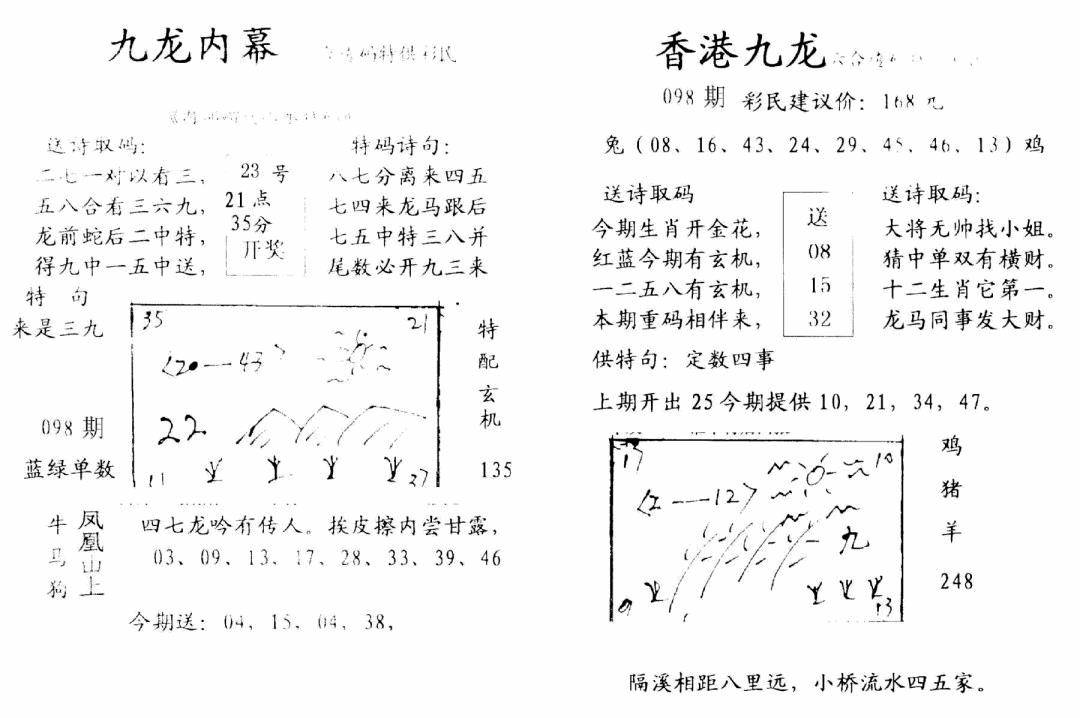 九龙内幕
码特供彩民
送诗取码：
二七一对以看三，
五八合看三六九，
龙前蛇后二中特，
得九中一五中送，
23 号
21 点
35分
开奖
特码诗句：
八七分离来四五
七四来龙马跟后
七五中特三八并
尾数必开九三来
特 句
来是三九
098 期
蓝绿单数
35
21
<20—43>
22
11
27
特配玄机
135
牛
马
狗
凤凰山上
四七龙吟有传人。挨皮擦内尝甘露，
03、09、13、17、28、33、39、46
今期送：04、15、04、38，
香港九龙
098 期 彩民建议价：168 元
兔（08、16、43、24、29、45、46、13）鸡
送诗取码
今期生肖开金花，
红蓝今期有玄机，
一二五八有玄机，
本期重码相伴来，
送
08
15
32
送诗取码：
大将无帅找小姐。
猜中单双有横财。
十二生肖它第一。
龙马同事发大财。
供特句：定数四事
上期开出 25 今期提供 10，21，34，47。
17
10
<2—12>
九
9
13
鸡
猪
羊
248
隔溪相距八里远，小桥流水四五家。